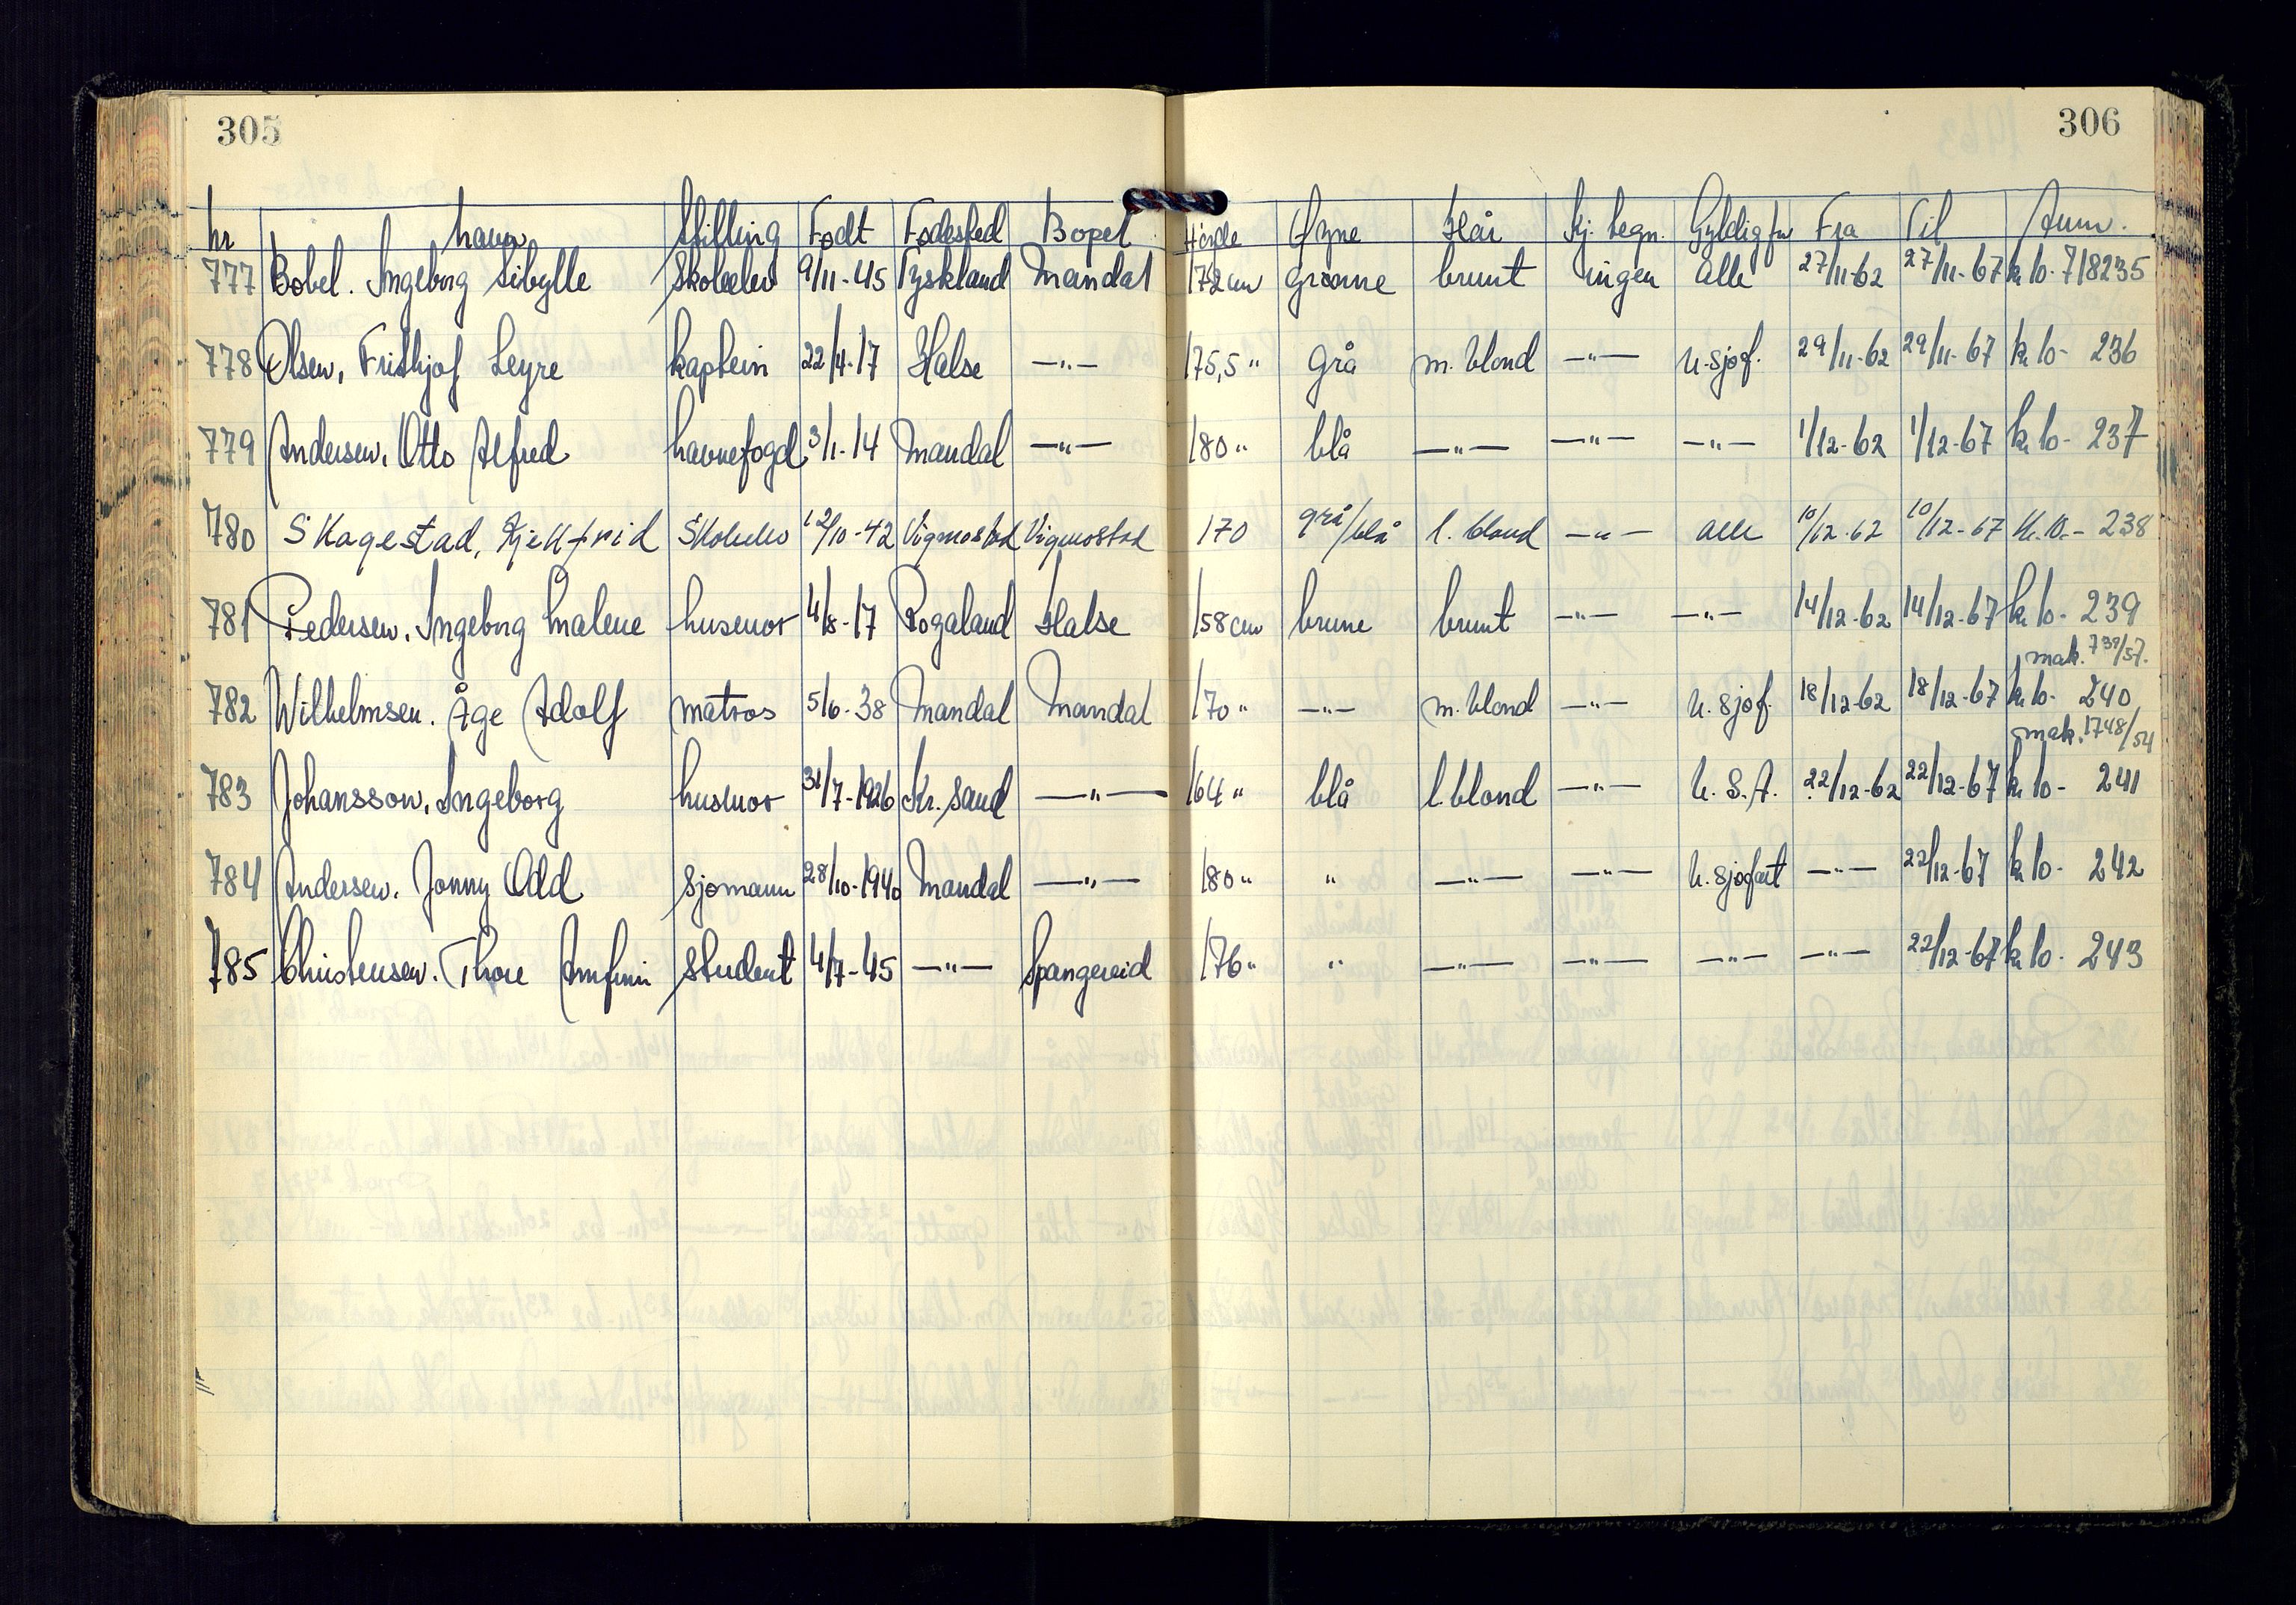 305 306
nr Navn Stilling Født Fødested Bopel Høide Øyne Hår Kj. tegn. Gyldig for Fra Til Anm.
777 Bobel. Ingeborg Sibylle Skoleelev 9/11-45 Tyskland Mandal 172 cm Grønne brunt ingen alle 27/11-62 27/11-67 kr 10- 718235
778 Olsen, Frithjof Leyre kaptein 22/4-17 Halse —"— 175,5 " Grå m. blond —"— U. sjøf. 29/11-62 29/11-67 kr 10- 236
779 Andersen, Otto Alfred havnefogd 3/1-14 Mandal —"— 180 " blå —"— —"— —"— 1/12-62 1/12-67 kr 10- 237
780 Skagestad, Kjellfrid Skoleelev 12/10-42 Vigmostad Vigmostad 170 grå/blå l. blond —"— alle 10/12-62 10/12-67 Kr. 10.- 238
781 Pedersen, Ingeborg Malene husmor 4/8-17 Rogaland Halse 158 cm brune brunt —"— —"— 14/12-62 14/12-67 kr 10- 239
mak. 739/57.
782 Wilhelmsen. Åge Adolf matros 5/6-38 Mandal Mandal 170 " —"— m. blond —"— U. sjøf. 18/12-62 18/12-67 kr 10- 240
mak. 1748/54
783 Johansson, Ingeborg husmor 31/7-1926 Kr. sand —"— 164 " blå l. blond —"— U. S. A. 22/12-62 22/12-67 kr 10- 241
784 Andersen. Jonny Odd sjømann 28/10-1940 Mandal —"— 180 " " —"— —"— U. sjøfart —"— 22/12-67 kr 10- 242
785 Christensen. Thore Arnfinn student 4/7-45 —"— Spangereid 176 " " —"— —"— —"— —"— 22/12-67 kr 10- 243